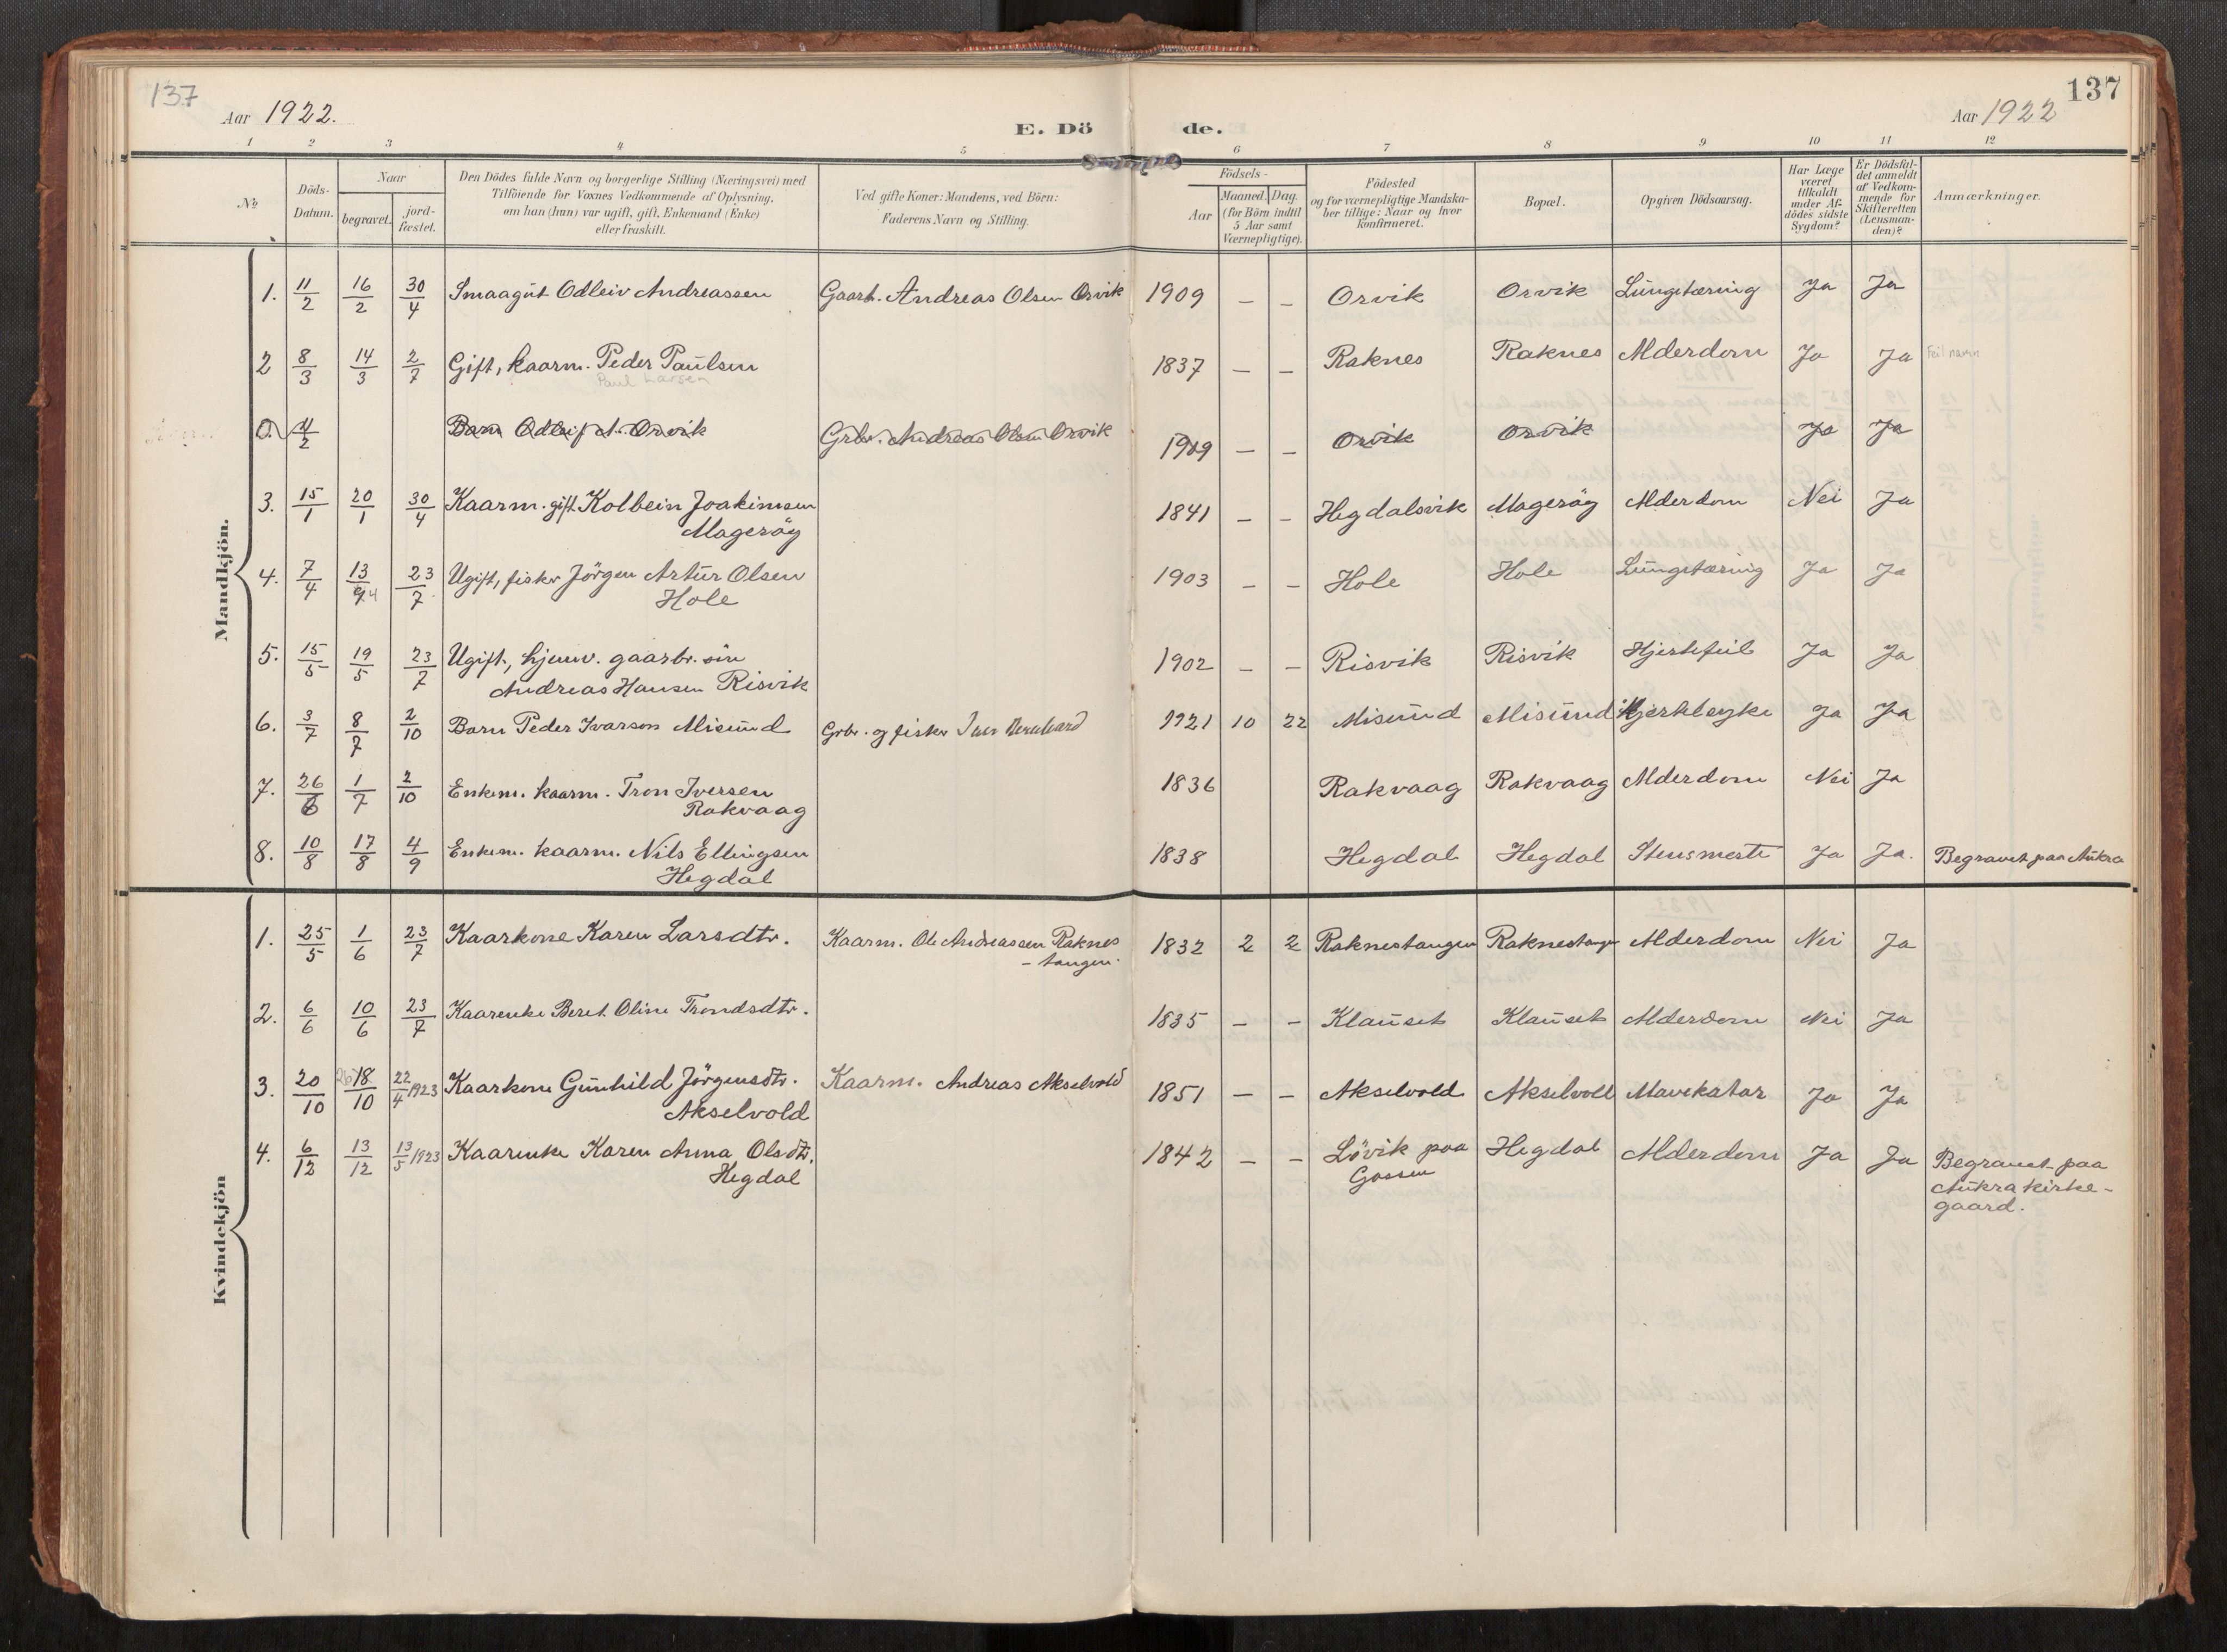 137
137
Aar 1922.
E. Dö de.
Aar 1922
1 2 3 4 5 6 7 8 9 10 11 12
№
Döds-Datum.
Naar
begravet.
jord-fæstet.
Den Dödes fulde Navn og borgerlige Stilling (Næringsvei) med
Tilföiende for Voxnes Vedkommende af Oplysning,
om han (hun) var ugift, gift, Enkemand (Enke)
eller fraskilt.
Ved gifte Koner: Mandens, ved Börn:
Faderens Navn og Stilling.
Födsels-
Aar
Maaned. Dag.
(for Börn indtil
5 Aar samt
Værnepligtige).
Födested
og for værnepligtige Mandska-
ber tillige: Naar og hvor
konfirmeret.
Bopæl.
Opgiven Dödsaarsag.
Har Læge
været
tilkaldt
under Af-
dödes sidste
Sygdom?
Er Dödsfal-
det anmeldt
af Vedkom-
mende for
Skifteretten
(Lensman-
den)?
Anmærkninger.
Mandkjön.
1. 11/2 16/2 30/4 Smaagut Odleiv Andreassen Gaarb. Andreas Olsen Orvik 1909 — — Orvik Orvik Lungetæring Ja Ja
2 8/3 14/3 2/7 Gift, kaarm. Peder Paulsen 1837 — — Raknes Raknes Alderdom Ja Ja Feil navn
Paul Larsen
0. 11/2 Barn Odleif A. Orvik Grbr. Andreas Olsen Orvik 1909 — — Orvik Orvik Ja Ja
3. 15/1 20/1 30/4 Kaarm. gift. Kolbein Joakimsen 1841 — — Hegdalsvik Mageröy Alderdom Nei Ja
Mageröy
4. 7/4 13/4 23/7 Ugift, fisker Jörgen Artur Olsen 1903 — — Hole Hole Lungetæring Ja Ja
Hole
5. 15/5 19/5 23/7 Ugift, hjemv. gaarbr. sön 1902 — — Risvik Risvik Hjertefeil Ja Ja
Andreas Hansen Risvik
6. 3/7 8/7 2/10 Barn Peder Ivarson Misund Grbr. og fisker Iver Bernhard 1921 10 22 Misund Misund Ja Ja
7. 26/6 1/7 2/10 Enkem. kaarm. Tron Iversen 1836 Rakvaag Rakvaag Alderdom Nei Ja
Rakvaag
8. 10/8 17/8 4/9 Enkem. kaarm. Nils Ellingsen 1838 Hegdal Hegdal Stensmerte Ja Ja. Begravet paa Aukra
Hegdal
Kvindekjön
1. 25/5 1/6 23/7 Kaarkone Karen Larsdtr. Kaarm. Ole Andreassen Raknes 1832 2 2 Raknestangen Raknestangen Alderdom Nei Ja
- tangen.
2. 6/6 10/6 23/7 Kaarenke Beret Oline Trondsdtr. 1835 — — Klauset Klauset Alderdom Nei Ja
3. 20/10 26 18/10 22/4 1923 Kaarkone Gunhild Jörgensdtr. Kaarm. Andreas Akselvold 1851 — — Akselvold Akselvoll Mavekatar Ja Ja
Akselvold
4. 6/12 13/12 13/5 1923 Kaarenke Karen Anna Olsdtr. 1842 — — Lövik paa Hegdal Alderdom Ja Ja Begravet paa
Hegdal Gossen Aukra kirke-
gaard.